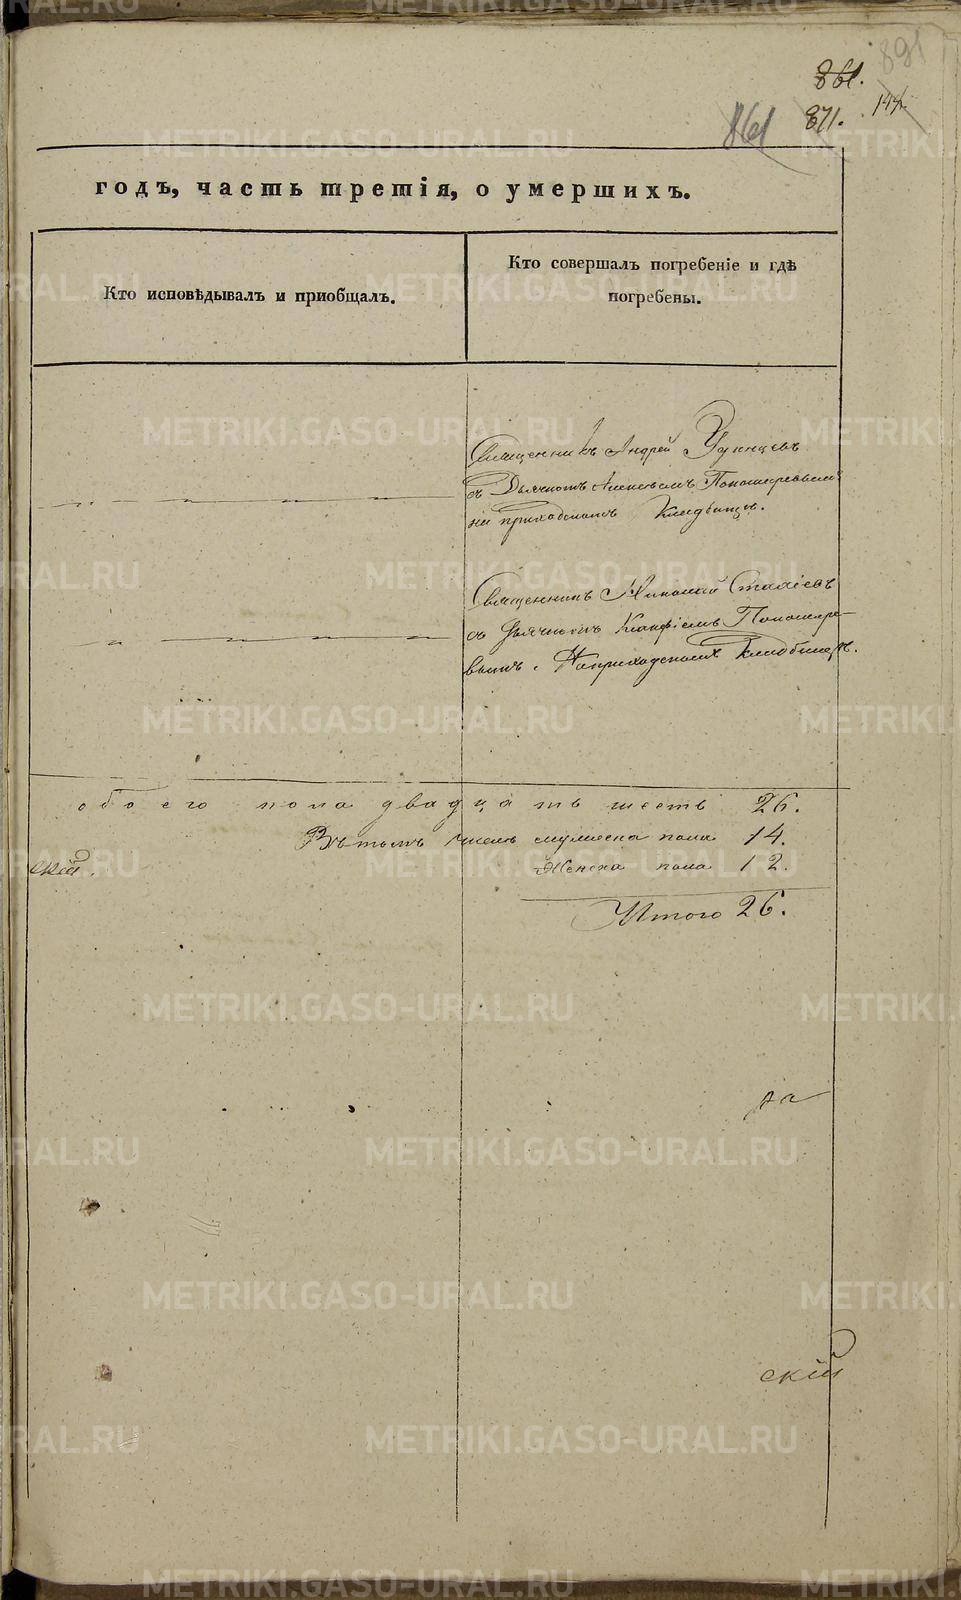 891
861.
861 871. 144.
годъ, часть третія, о умершихъ.
Кто исповѣдывалъ и приобщалъ.
Кто совершалъ погребеніе и гдѣ
погребены.
Священникъ Андрей Удинцевъ
съ Дьячкомъ Алексѣемъ Пономаревым
приходскомъ Кладбищѣ.
Священникъ Николай
съ Дьячкомъ Пономаре-
вымъ. На приходскомъ Кладбищѣ.
обоего пола двадцать шесть 26.
Въ томъ числѣ мужеска пола 14.
скій.
Женска пола 12.
Итого 26.
скій
METRIKI.GASO-URAL.RU